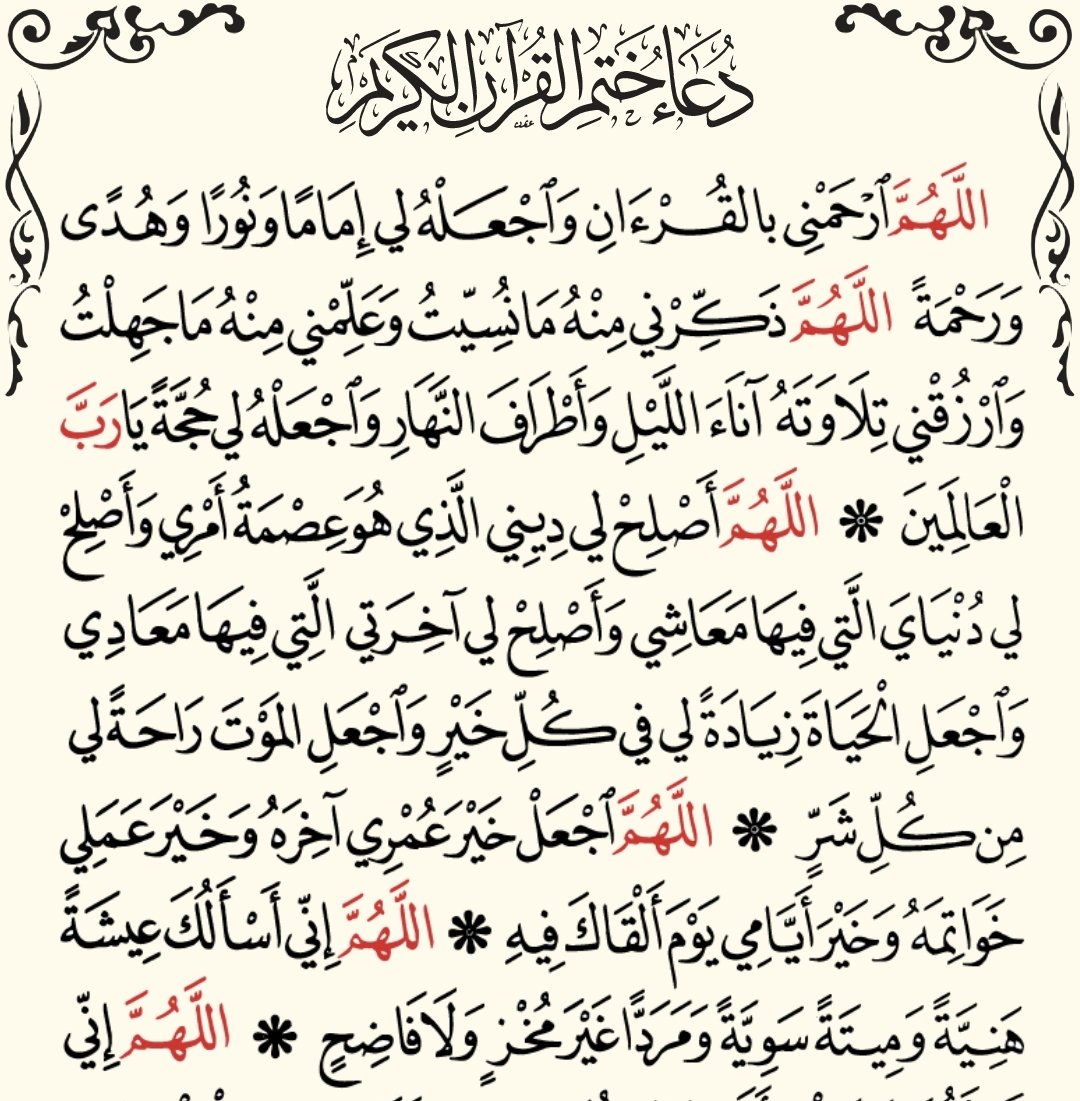 دُعَاءُ خَتْمِ القُرْآنِ الكَرِيمِ
اللَّهُمَّ ٱرْحَمْنِي بالقُرْءَانِ وَٱجْعَلْهُ لي إِمَامًا وَنُورًا وَهُدًى
وَرَحْمَةً اللَّهُمَّ ذَكِّرْني مِنْهُ مَا نُسِّيتُ وَعَلِّمْني مِنْهُ مَا جَهِلْتُ
وَٱرْزُقْني تِلَاوَتَهُ آنَاءَ اللَّيْلِ وَأَطْرَافَ النَّهَارِ وَٱجْعَلْهُ لي حُجَّةً يَا رَبَّ
الْعَالَمِينَ * اللَّهُمَّ أَصْلِحْ لي دِيني الَّذِي هُوَ عِصْمَةُ أَمْرِي وَأَصْلِحْ
لي دُنْيَايَ الَّتي فِيهَا مَعَاشِي وَأَصْلِحْ لي آخِرَتي الَّتِي فِيهَا مَعَادِي
وَٱجْعَلِ الْحَيَاةَ زِيَادَةً لي في كُلِّ خَيْرٍ وَٱجْعَلِ المَوْتَ رَاحَةً لي
مِن كُلِّ شَرٍّ * اللَّهُمَّ ٱجْعَلْ خَيْرَ عُمْرِي آخِرَهُ وَخَيْرَ عَمَلِي
خَوَاتِمَهُ وَخَيْرَ أَيَّامِي يَوْمَ أَلْقَاكَ فِيهِ * اللَّهُمَّ إِنّي أَسْأَلُكَ عِيشَةً
هَنِيَّةً وَمِيتَةً سَوِيَّةً وَمَرَدًّا غَيْرَ مُخْزٍ وَلَا فَاضِحٍ * اللَّهُمَّ إِنّي